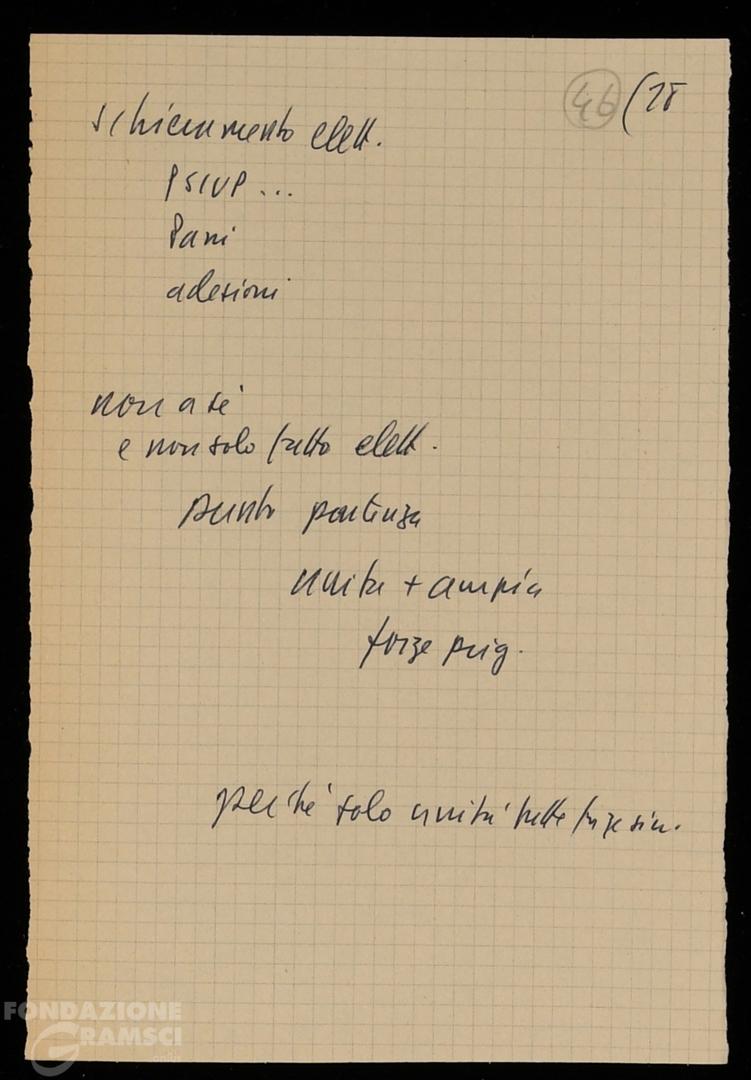 46 (28
schieramento elett.
PSIUP ...
Parri
adesioni
non a sé
e non solo fatto elett.
punto partenza
unità + ampia
forze prog.
perché solo unità tutte forze sin.
FONDAZIONE
GRAMSCI